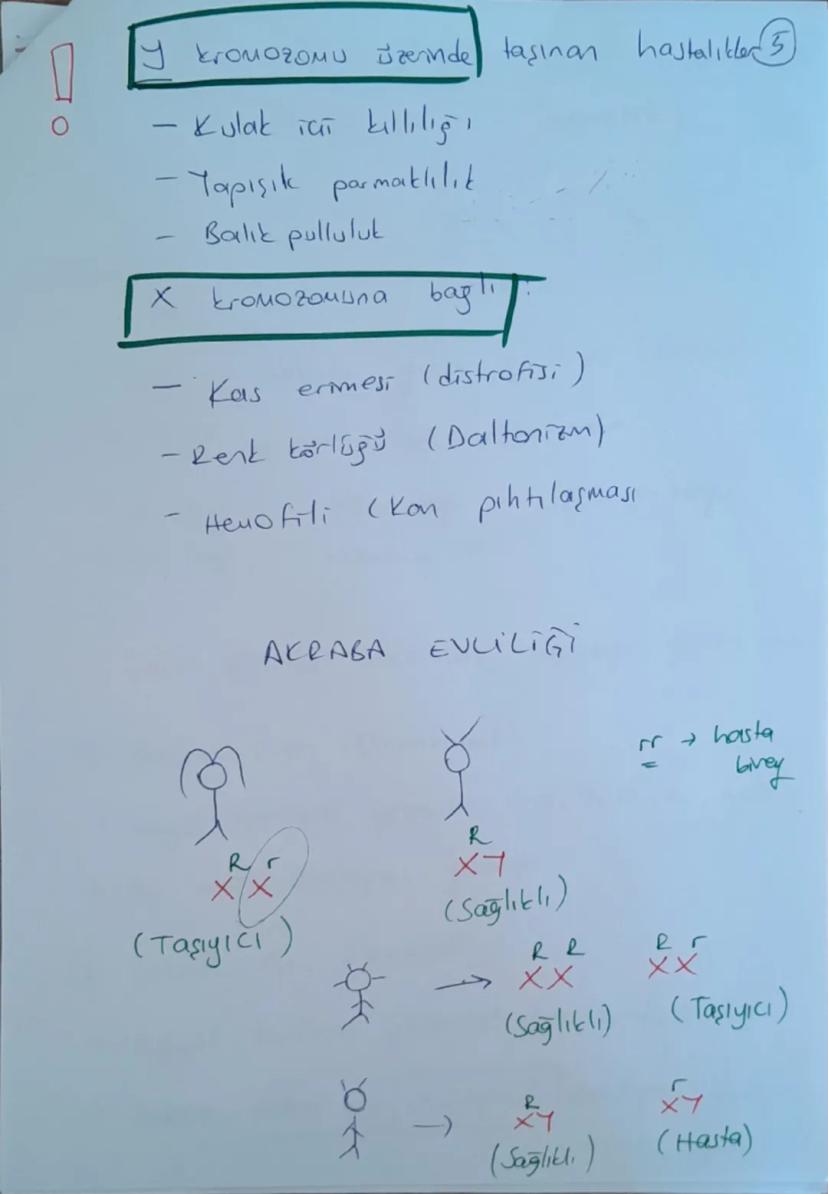 Y kromozomu üzerinde taşınan hastalıklar 5
- Kulak içi kıllılığı
- Yapışık parmaklılık
- Balık pulluluk
X kromozomuna bağlı :
- Kas erimesi (distrofisi)
- Renk körlüğü (Daltonizm)
- Hemofili (Kan pıhtılaşması
AKRABA EVLİLİĞİ
rr → hasta
birey
R r
X X
(Taşıyıcı)
R
XY
(Sağlıklı)
R R
XX
(Sağlıklı)
R r
XX
(Taşıyıcı)
R
XY
(Sağlıklı)
r
XY
(Hasta)